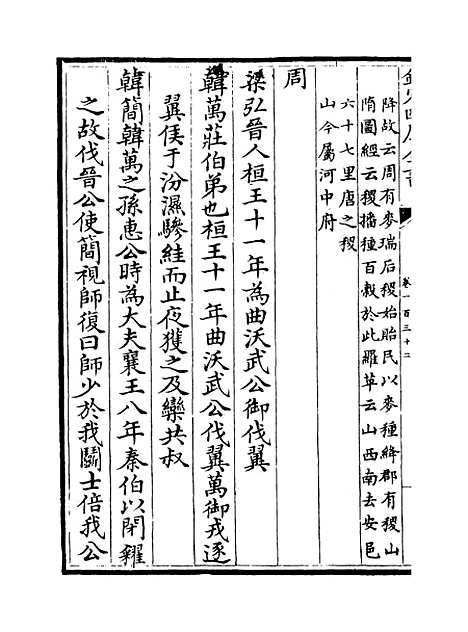 欽定四庫全書
卷一百三十二
降故云周有麥瑞后稷始胎民以麥種絳郡有稷山
隋圖經云稷播種百穀於此羅草云山西南去安邑
六十七里唐之稷
山今屬河中府
周
梁弘晉人桓王十一年為曲沃武公御伐翼
韓萬莊伯弟也桓王十一年曲沃武公伐翼萬御戎逐
翼侯于汾濕驂絓而止夜獲之及欒共叔
韓簡韓萬之孫惠公時為大夫襄王八年秦伯以閉糴
之故伐晉公使簡視師復曰師少於我鬭士倍我公